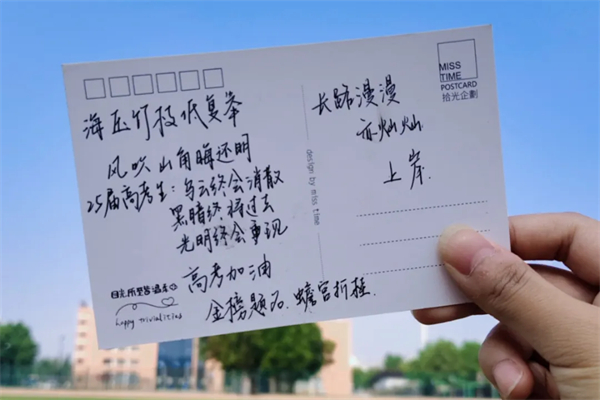 海压竹枝低复举
风吹山角晦还明
25届高考生：乌云终会消散
黑暗终将过去
光明终会重现
高考加油
金榜题名、蟾宫折桂.
happy trivialities
design by miss time
MISS
TIME
POSTCARD
拾光企劃
长路漫漫
亦灿灿
上岸.